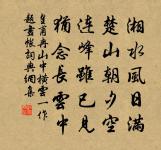 湘水風日滿
楚山朝夕空
連峰雖已見
猶念長雲中
皇甫冉山中橫雲一作
題畫帳詞典網集